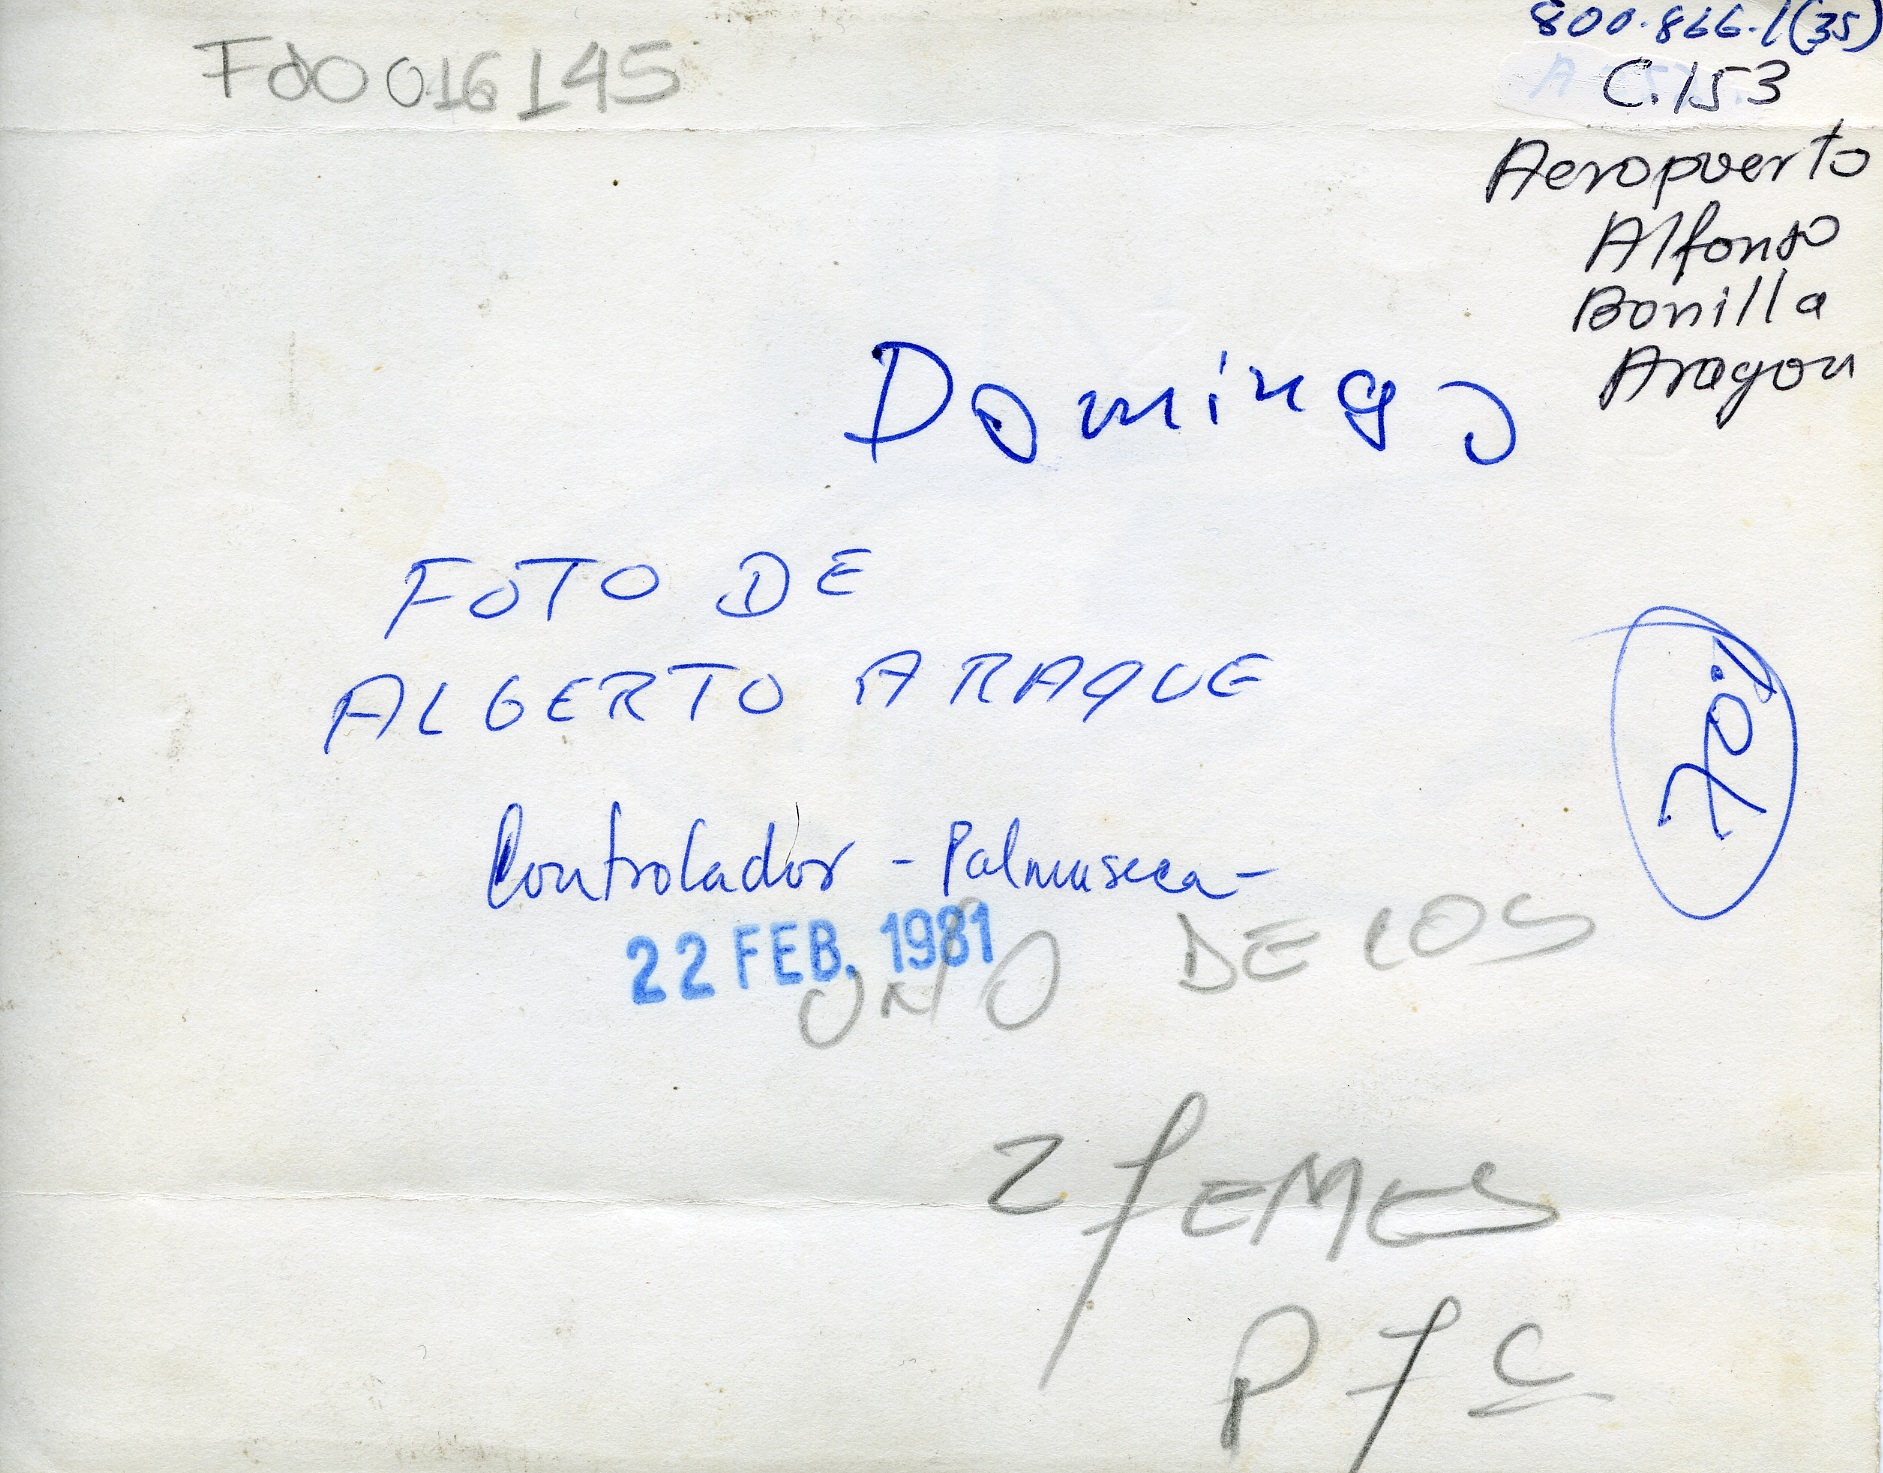 Fd0016145
800.866.1(35)
C.153
Aeropuerto
Alfonso
Bonilla
Aragon
Domingo
FOTO DE
ALBERTO ARAQUE
70%
Controlador - Palmaseca -
22 FEB. 1981
UNO DE LOS
2 fEMES
P f C